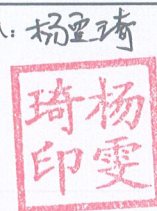 ：杨雯琦
杨雯
琦印